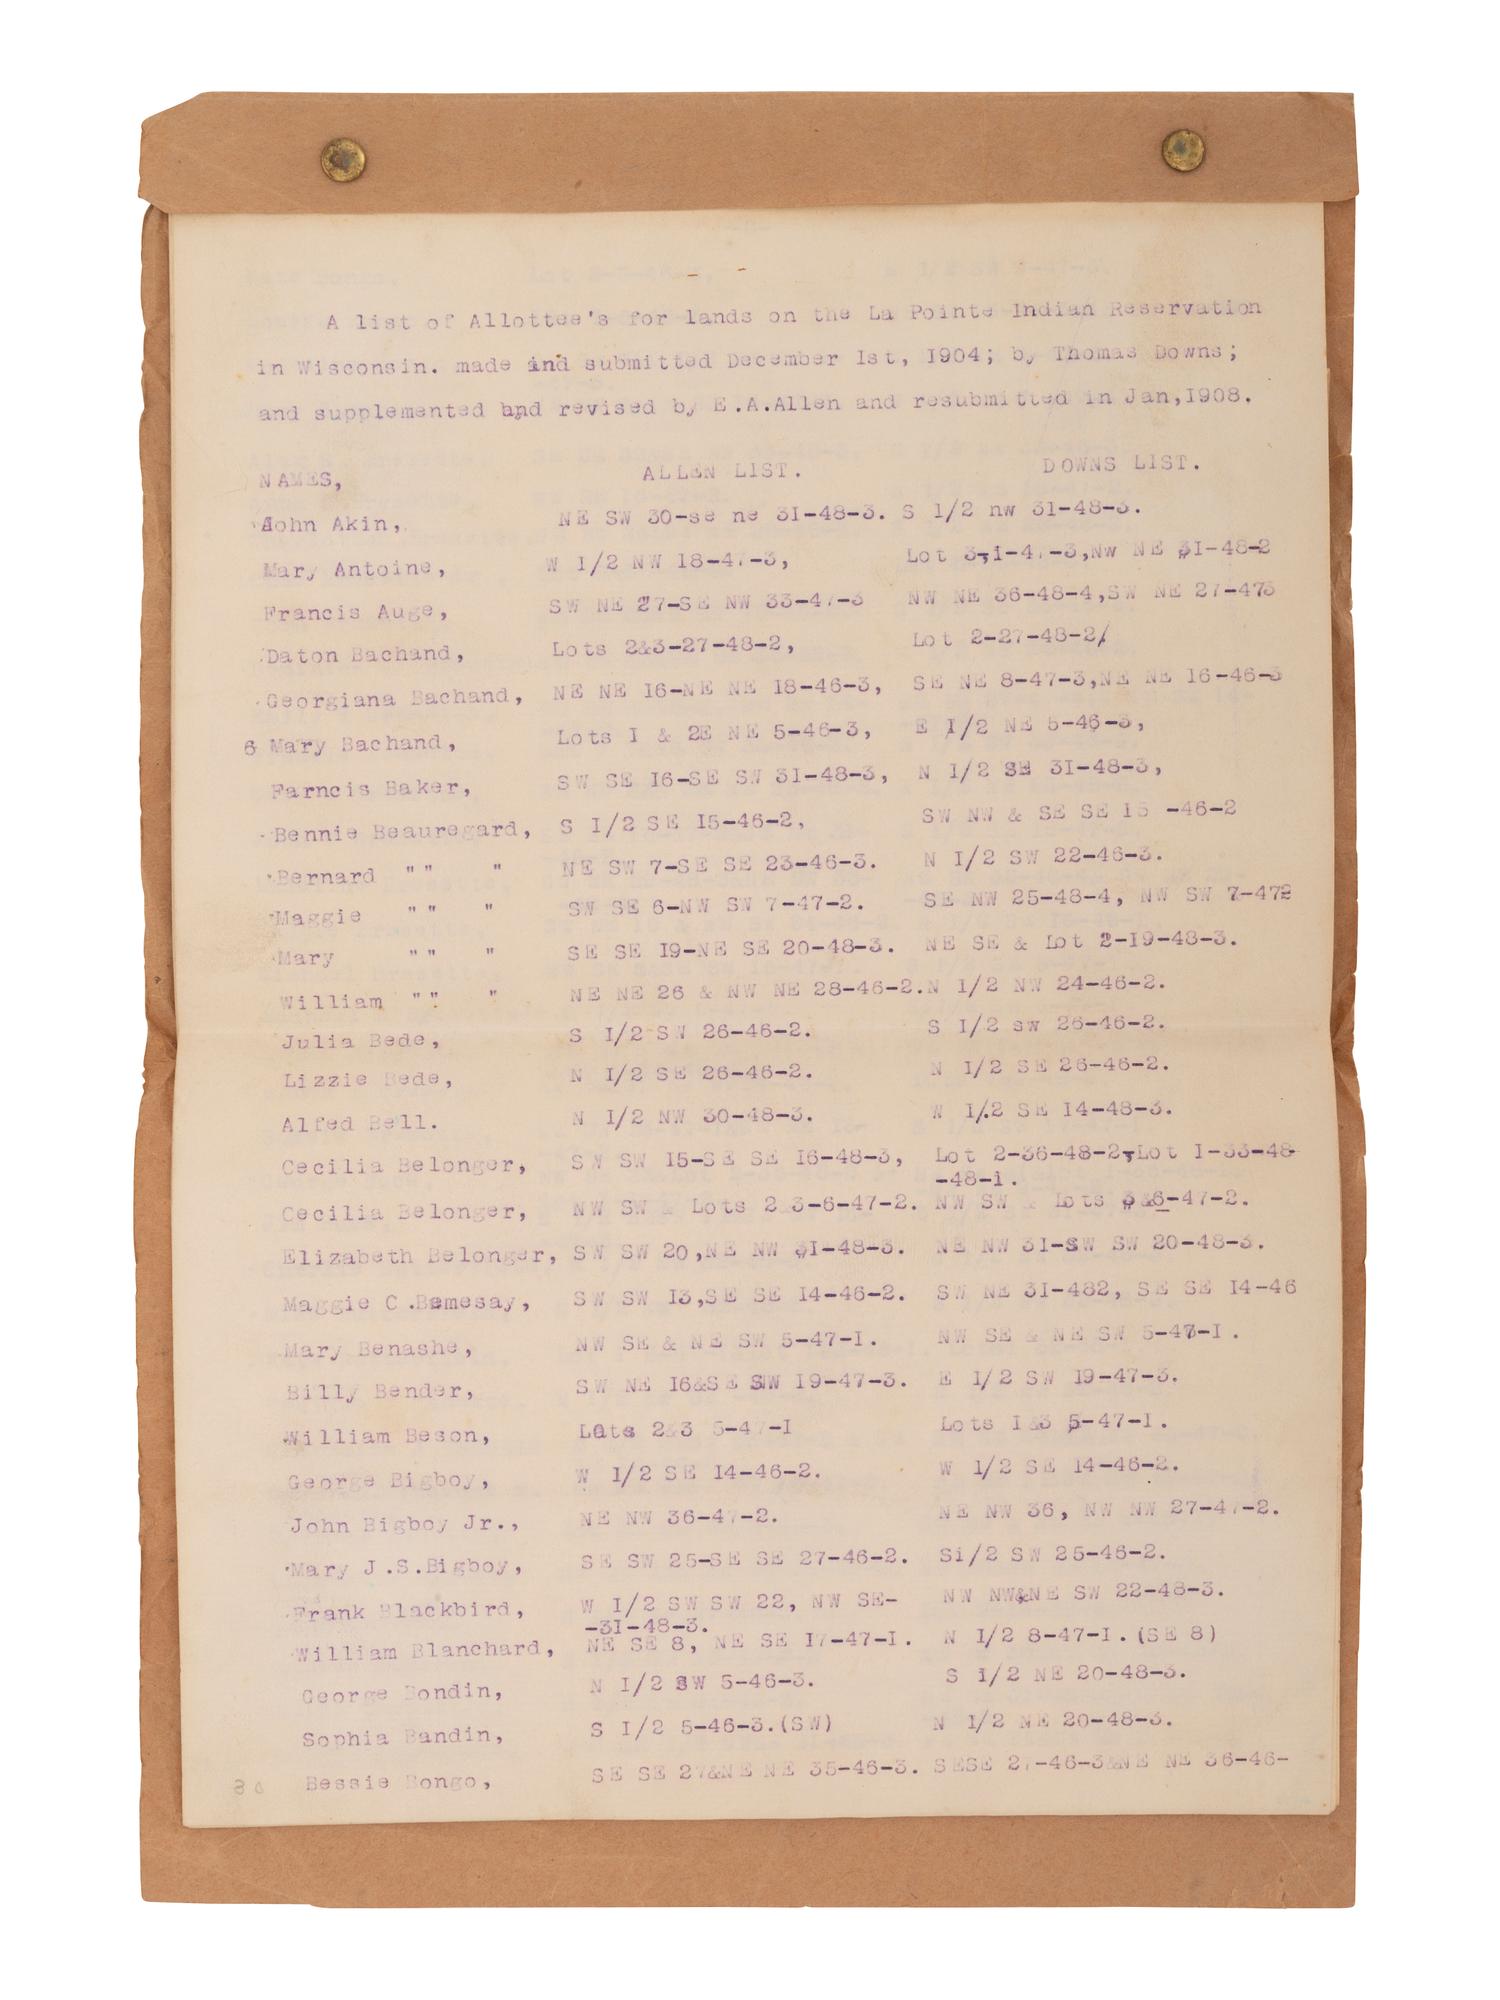 A list of Allottee's for lands on the La Pointe Indian Reservation
in Wisconsin. made and submitted December 1st, 1904; by Thomas Downs;
and supplemented and revised by E.A.Allen and resubmitted in Jan,1908.
NAMES, ALLEN LIST. DOWNS LIST.
John Akin, NE SW 30-se ne 31-48-3. S 1/2 nw 31-48-3.
Mary Antoine, W 1/2 NW 18-47-3, Lot 3,1-47-3,Nw NE 31-48-2
Francis Auge, SW NE 27-SE NW 33-47-3 NW NE 36-48-4,SW NE 27-473
Daton Bachand, Lots 2&3-27-48-2, Lot 2-27-48-2/
Georgiana Bachand, NE NE 16-NE NE 18-46-3, SE NE 8-47-3,NE NE 16-46-3
6 Mary Bachand, Lots I & 2E NE 5-46-3, E 1/2 NE 5-46-3,
Farncis Baker, SW SE 16-SE SW 31-48-3, N 1/2 SE 31-48-3,
Bennie Beauregard, S 1/2 SE 15-46-2, SW NW & SE SE 15 -46-2
Bernard "" " NE SW 7-SE SE 23-46-3. N 1/2 SW 22-46-3.
Maggie "" " SW SE 6-NW SW 7-47-2. SE NW 25-48-4, NW SW 7-472
Mary "" " SE SE 19-NE SE 20-48-3. NE SE & Lot 2-19-48-3.
William "" " NE NE 26 & NW NE 28-46-2. N 1/2 NW 24-46-2.
Julia Bede, S 1/2 SW 26-46-2. S 1/2 sw 26-46-2.
Lizzie Bede, N 1/2 SE 26-46-2. N 1/2 SE 26-46-2.
Alfed Bell. N 1/2 NW 30-48-3. W 1/.2 SE 14-48-3.
Cecilia Belonger, SW SW 15-SE SE 16-48-3, Lot 2-36-48-2,Lot 1-33-48-
-48-1.
Cecilia Belonger, NW SW & Lots 2&3-6-47-2. NW SW & Lots 3&6-47-2.
Elizabeth Belonger, SW SW 20,NE NW 31-48-3. NE NW 31-SW SW 20-48-3.
Maggie C.Bemesay, SW SW 13,SE SE 14-46-2. SW NE 31-482, SE SE 14-46
Mary Benashe, NW SE & NE SW 5-47-I. NW SE & NE SW 5-47-I.
Billy Bender, SW NE 16&SE SW 19-47-3. E 1/2 SW 19-47-3.
William Beson, Lots 2&3 5-47-I Lots I&3 5-47-I.
George Bigboy, W 1/2 SE 14-46-2. W 1/2 SE 14-46-2.
John Bigboy Jr., NE NW 36-47-2. NE NW 36, NW NW 27-47-2.
Mary J.S.Bigboy, SE SW 25-SE SE 27-46-2. Si/2 SW 25-46-2.
Frank Blackbird, W 1/2 SW SW 22, NW SE- NW NW&NE SW 22-48-3.
-31-48-3.
William Blanchard, NE SE 8, NE SE 17-47-I. N 1/2 8-47-I.(SE 8)
George Bondin, N 1/2 SW 5-46-3. S 1/2 NE 20-48-3.
Sophia Bandin, S 1/2 5-46-3.(SW) N 1/2 NE 20-48-3.
30 Bessie Bongo, SE SE 27&NE NE 35-46-3. SESE 27-46-3&NE NE 36-46-